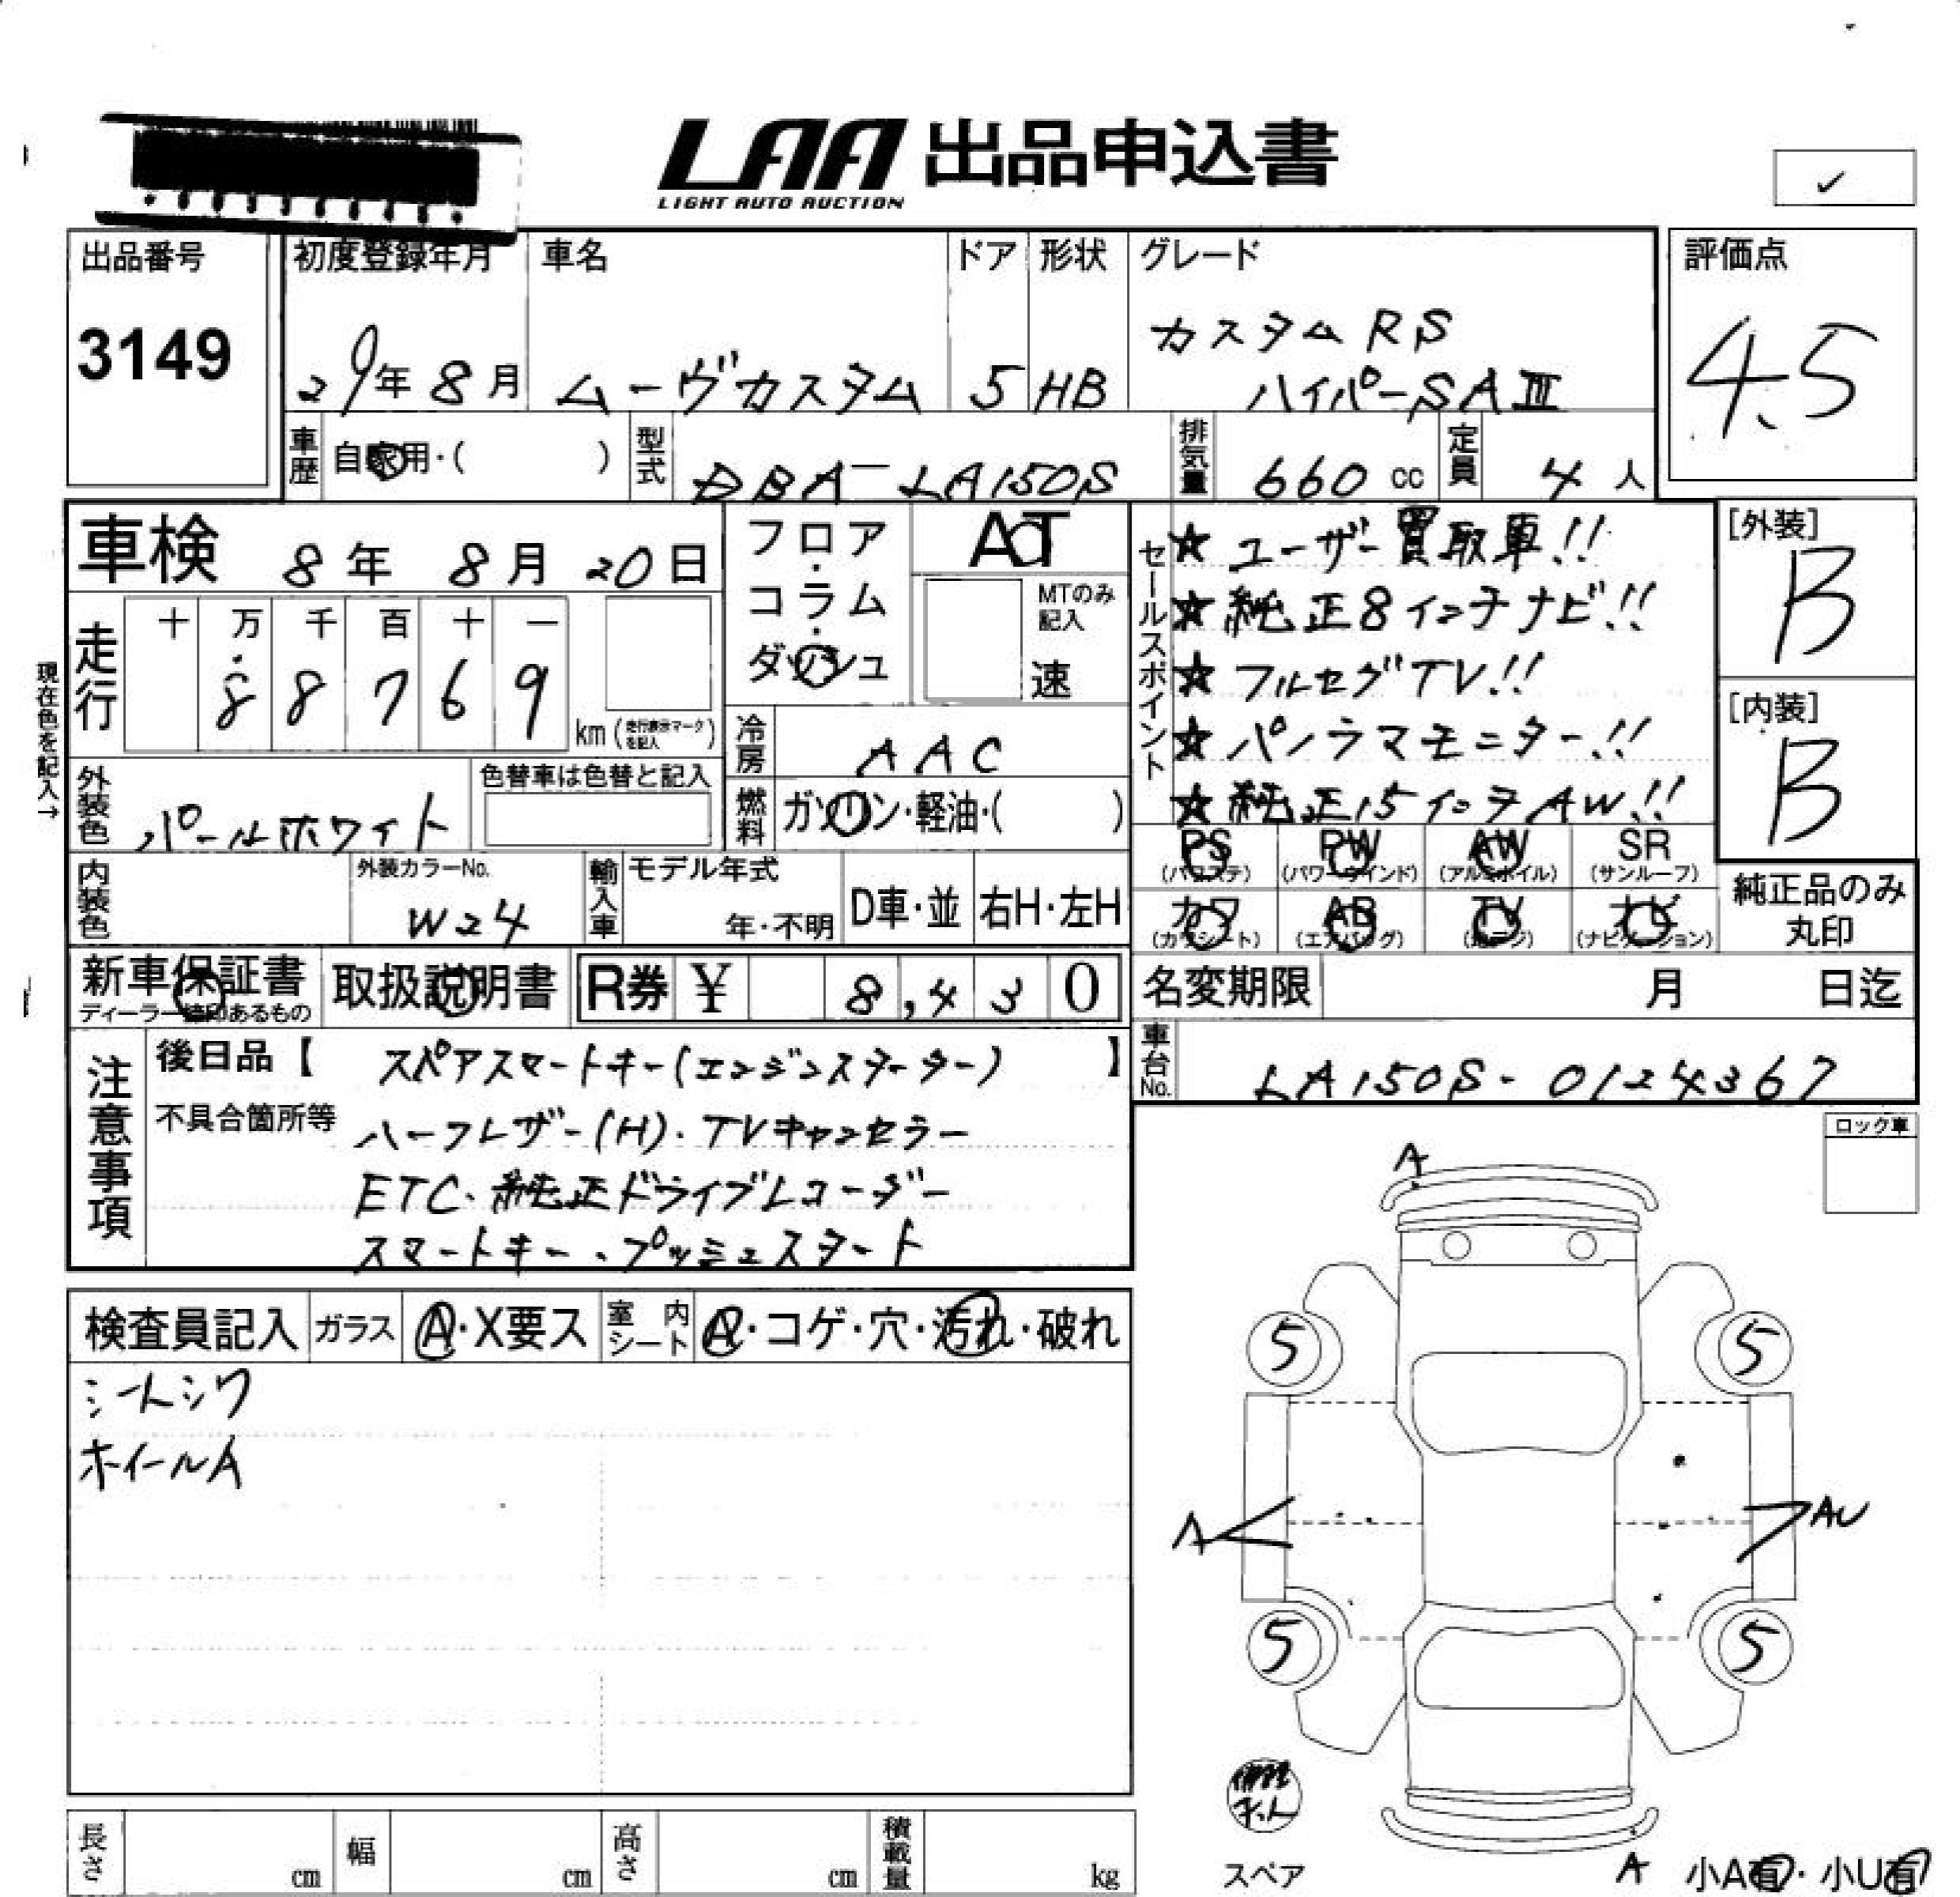 LAA 出品申込書
LIGHT AUTO AUCTION
✓
出品番号
3149
初度登録年月
29年 8月
車名
ムーヴカスタム
ドア
5
形状
HB
グレード
カスタムRS
ハイパーSAⅢ
評価点
4.5
車歴
自家用・( )
型式
DBA-LA150S
排気量
660 cc
定員
4 人
車検 8年 8月 20日
現在色を記入→
走行
十 万 千 百 十 一
8 8 7 6 9
km (走行表示マークを記入)
フロア・コラム・ダッシュ
AT
MTのみ記入
速
冷房
AAC
燃料
ガソリン・軽油・( )
外装色
パールホワイト
色替車は色替と記入
内装色
外装カラーNo.
W24
輸入車
モデル年式
年・不明
D車・並
右H・左H
セールスポイント
★ユーザー買取車!!
★純正8インチナビ!!
★フルセグTV!!
★パノラマモニター!!
★純正15インチAW!!
[外装]
B
[内装]
B
PS (パワステ)
PW (パワーウインド)
AW (アルミホイル)
SR (サンルーフ)
カワ (カワシート)
AB (エアバッグ)
TV (地デジ)
ナビ (ナビゲーション)
純正品のみ
丸印
新車保証書
ディーラー捺印あるもの
取扱説明書
R券 ¥ 8,430
名変期限 月 日迄
車台No.
LA150S-0124367
注意事項
後日品【 スペアスマートキー(エンジンスターター) 】
不具合箇所等
ハーフレザー(H)・TVキャンセラー
ETC・純正ドライブレコーダー
スマートキー・プッシュスタート
ロック車
検査員記入
ガラス
A・X要ス
室内シート
A・コゲ・穴・汚れ・破れ
シートシワ
ホイールA
A
5
5
A
AU
5
5
修理キット
スペア
A
小A有・小U有
長さ cm
幅 cm
高さ cm
積載量 kg